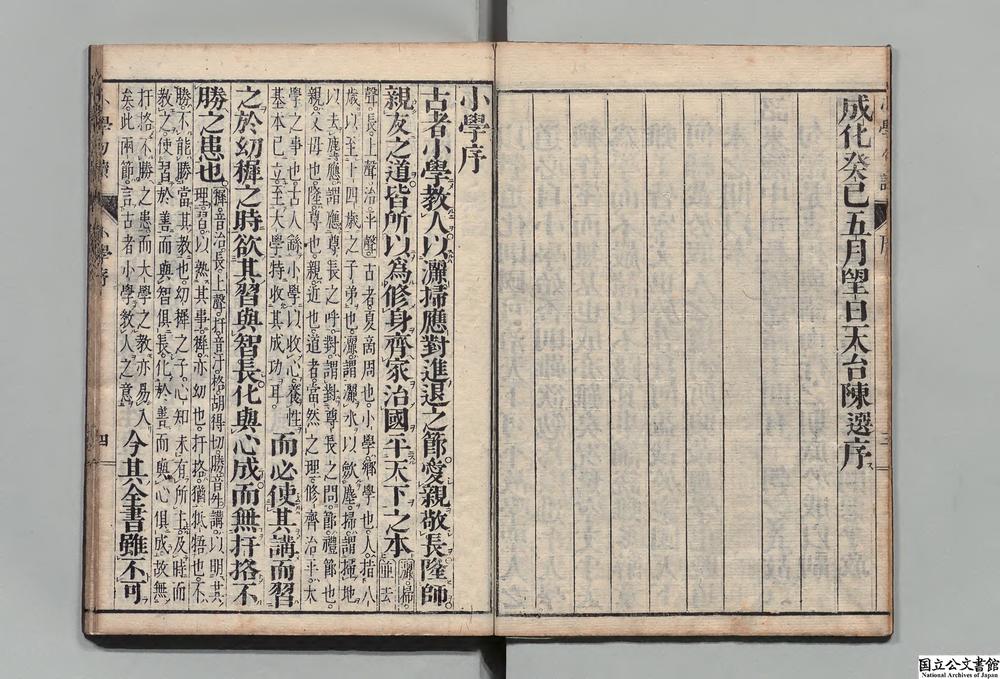 成化癸巳五月望日天台陳選序
小學序
古者小學教人以灑掃應對進退之節愛親敬長隆師
親友之道皆所以爲修身齊家治國平天下之本灑掃並去
聲長上聲治平聲古者夏商周也小學鄉學也人指八
歲以至十四歲之子弟也灑謂灑水以斂塵掃謂擁地
以去塵應謂應尊長之呼對謂對尊長之問節禮節也
親父母也隆尊也親近也道者當然之理修齊治平大
學之事也古人餘小學以收心養性
基本已立至大學特收其成功耳
而必使其講而習
之於幼穉之時欲其習與智長化與心成而無扞格不
勝之患也
穉音治長上聲扞音汗格胡得切勝音升講以明其
理習以熟其事穉亦幼也扞格猶牴牾也不
勝不能勝當其教也幼穉之子心知未有所主及時而
教之使習於善而與智俱長化於善而與心俱成故無
扞格不勝之患而大學之教亦易入
矣此兩節言古者小學教人之意
今其全書雖不可
小學序
四
国立公文書館
National Archives of Japan